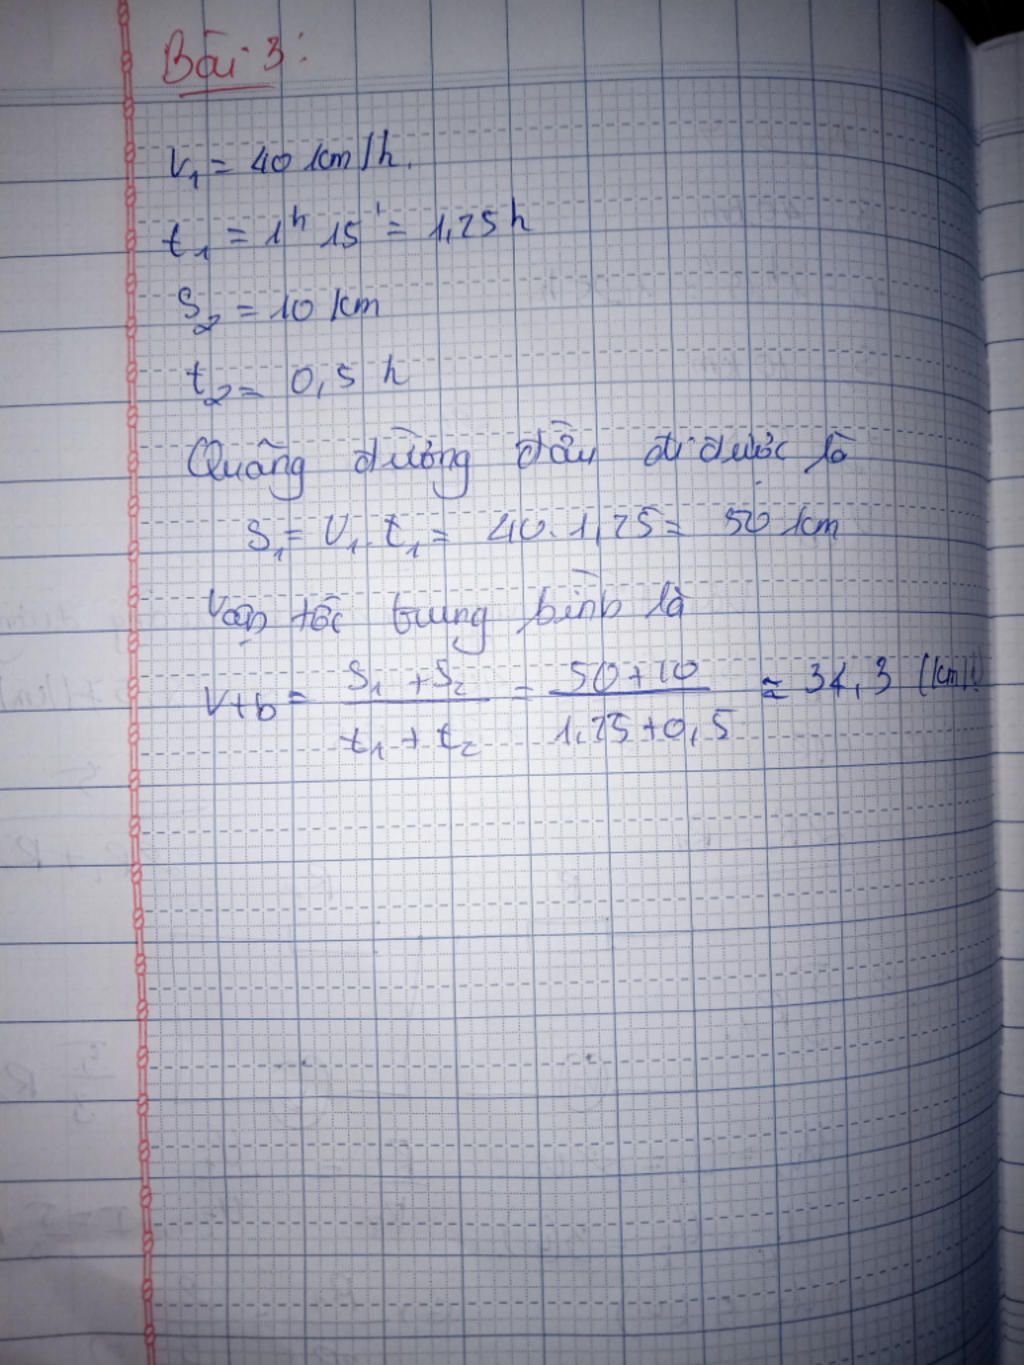 Bài 3:
V₁ = 40 km/h.
t₁ = 1ʰ 15' = 1,25 h
S₂ = 10 km
t₂ = 0,5 h
Quãng đường đầu đi được là
S₁ = V₁. t₁ = 40. 1,25 = 50 km
Vận tốc trung bình là
Vtb = S₁ + S₂ / t₁ + t₂ = 50+10 / 1,25+0,5 ≈ 34,3 (km/h)